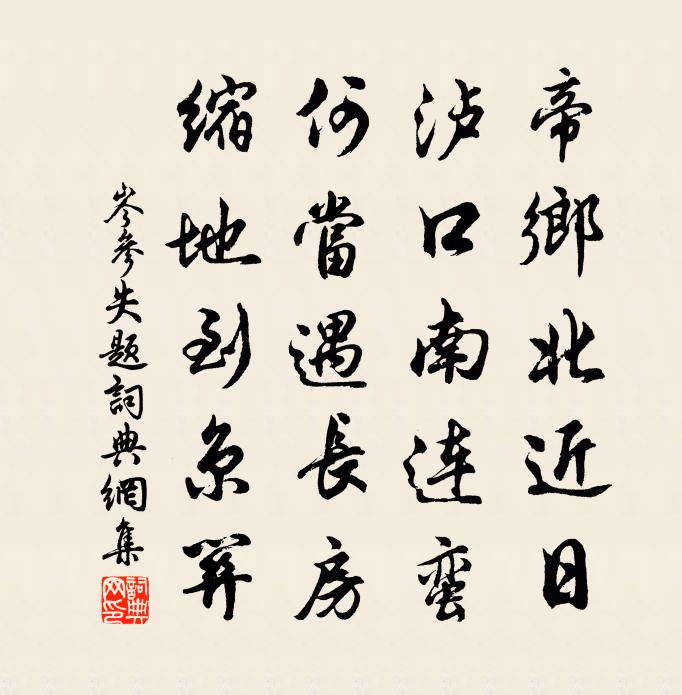 帝鄉北近日
泸口南連蛮
何當遇長房
縮地到京關
岑參失題詞典網集
詞典網印